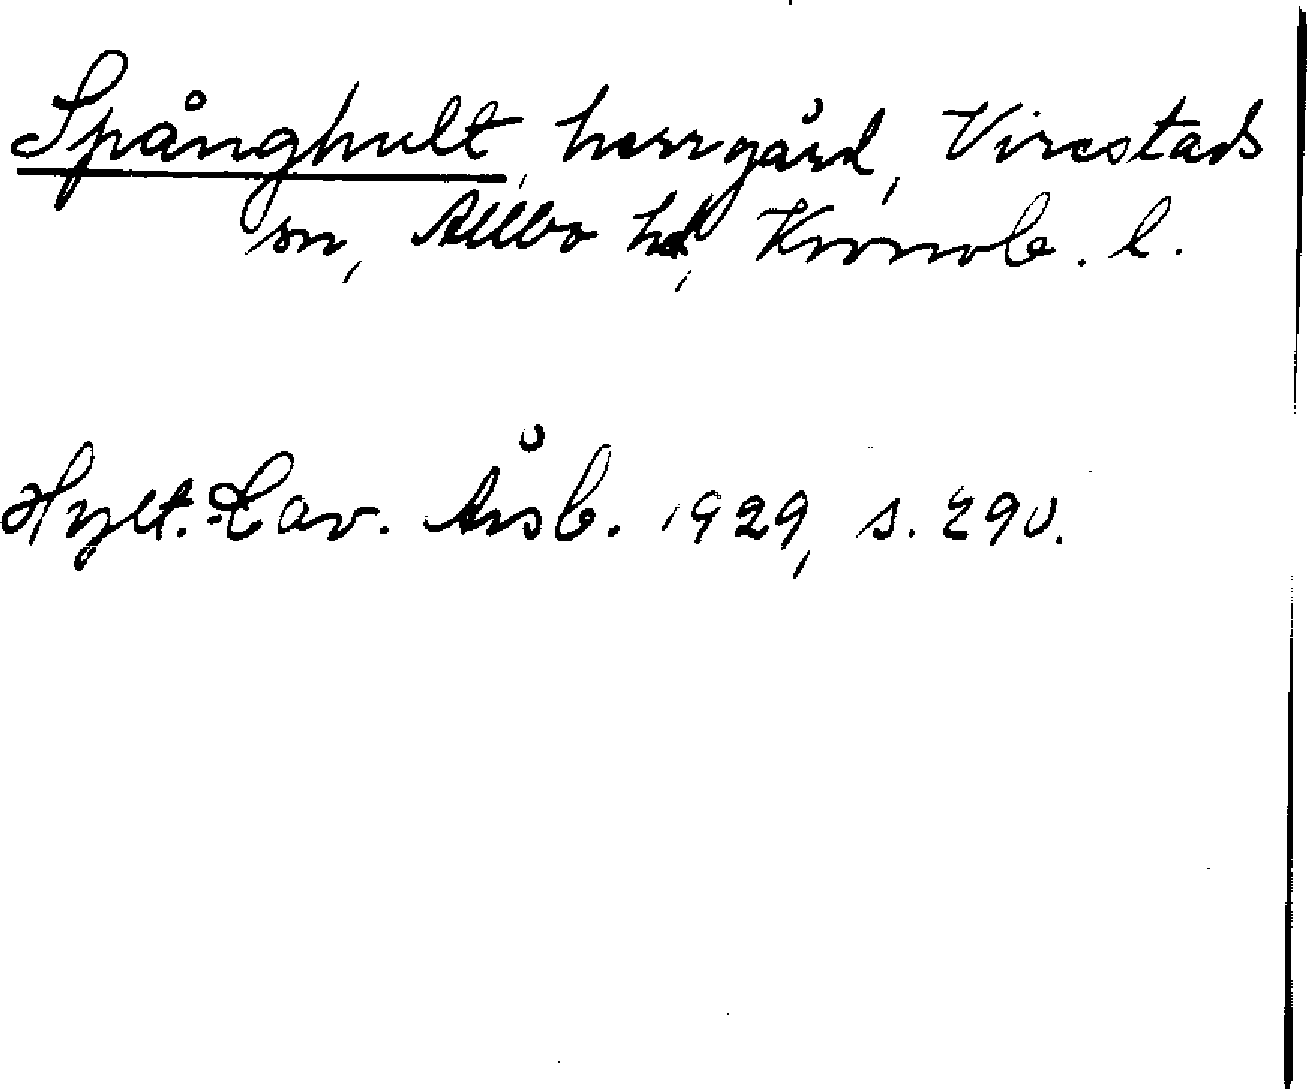 Spånghult, herrgård, Virestads
sn, Allbo hd, Kronob. l.
Hylt.-Cav. Årsb. 1929, s. 290.